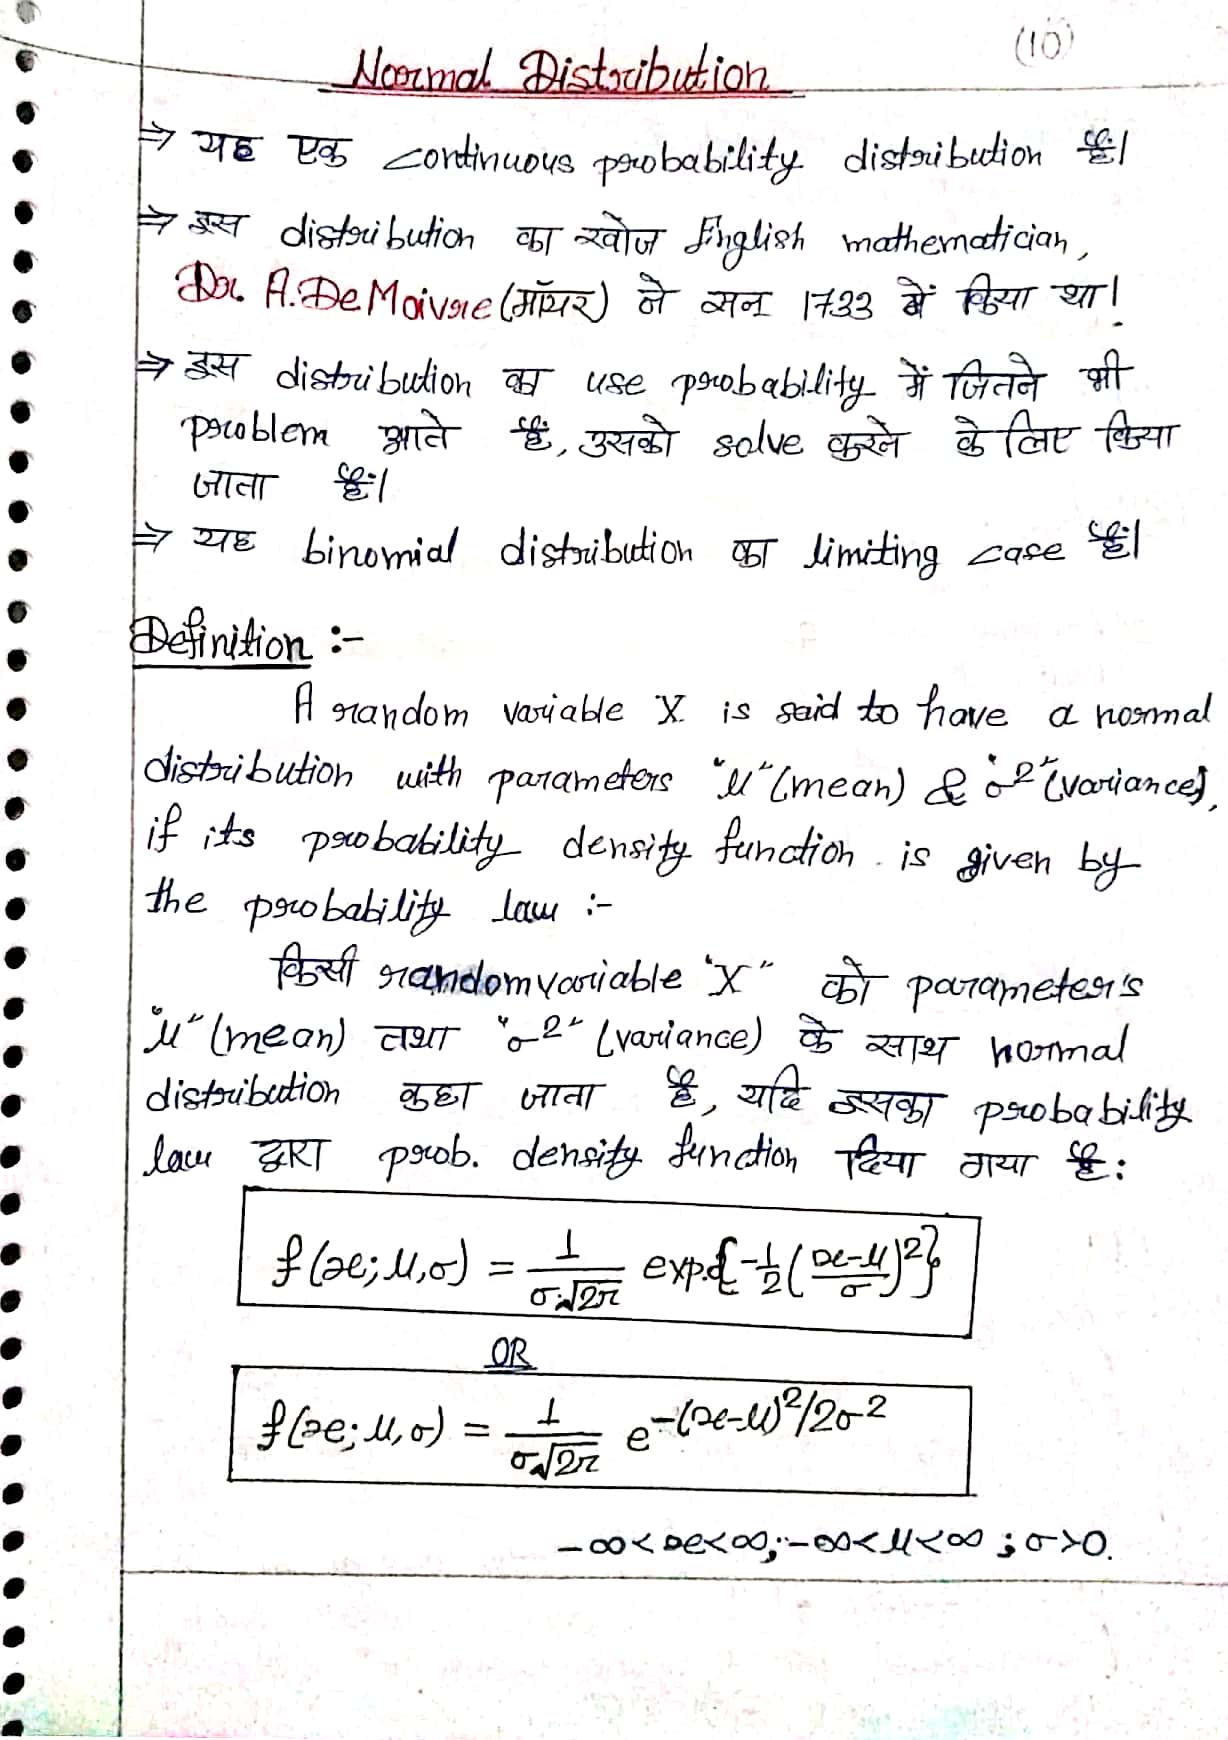 (10)
Normal Distribution
⇒ यह एक continuous probability distribution है।
⇒ इस distribution का खोज English mathematician,
Dr. A. De Moivre (मॉयर) ने सन् 1733 में किया था।
⇒ इस distribution का use probability में जितने भी
problem आते हैं, उसको solve करने के लिए किया
जाता है।
⇒ यह binomial distribution का limiting case है।
Definition :-
A random variable X is said to have a normal
distribution with parameters "μ" (mean) & "σ²" (variance),
if its probability density function is given by
the probability law :-
किसी random variable "X" को parameter's
"μ" (mean) तथा "σ²" (variance) के साथ normal
distribution कहा जाता है, यदि इसका probability
law द्वारा prob. density function दिया गया है :
f(x; μ, σ) = 1/(σ.√2π) exp.{-1/2 ((x-μ)/σ)²}
OR
f(x; μ, σ) = 1/(σ√2π) e^-(x-μ)²/2σ²
-∞<x<∞; -∞<μ<∞ ; σ>0.